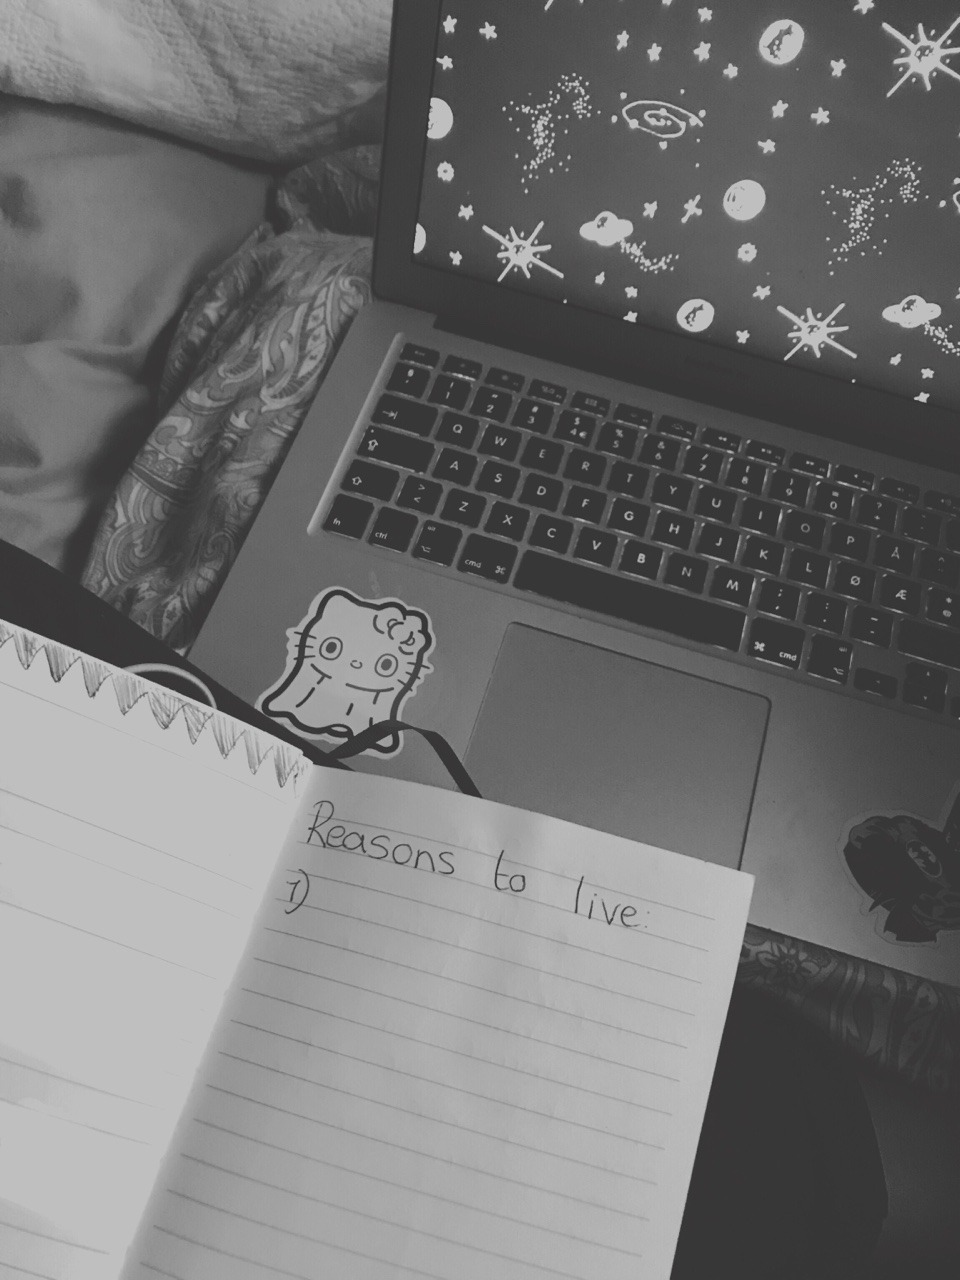 Reasons to live:
1)
! " # $ % & / ( ) = ?
1 2 3 4 € 5 6 7 8 9 0
Q W E R T Y U I O P Å
A S D F G H J K L Ø Æ
> < Z X C V B N M ; , : . _ -
fn ctrl cmd ⌘ ⌘ cmd